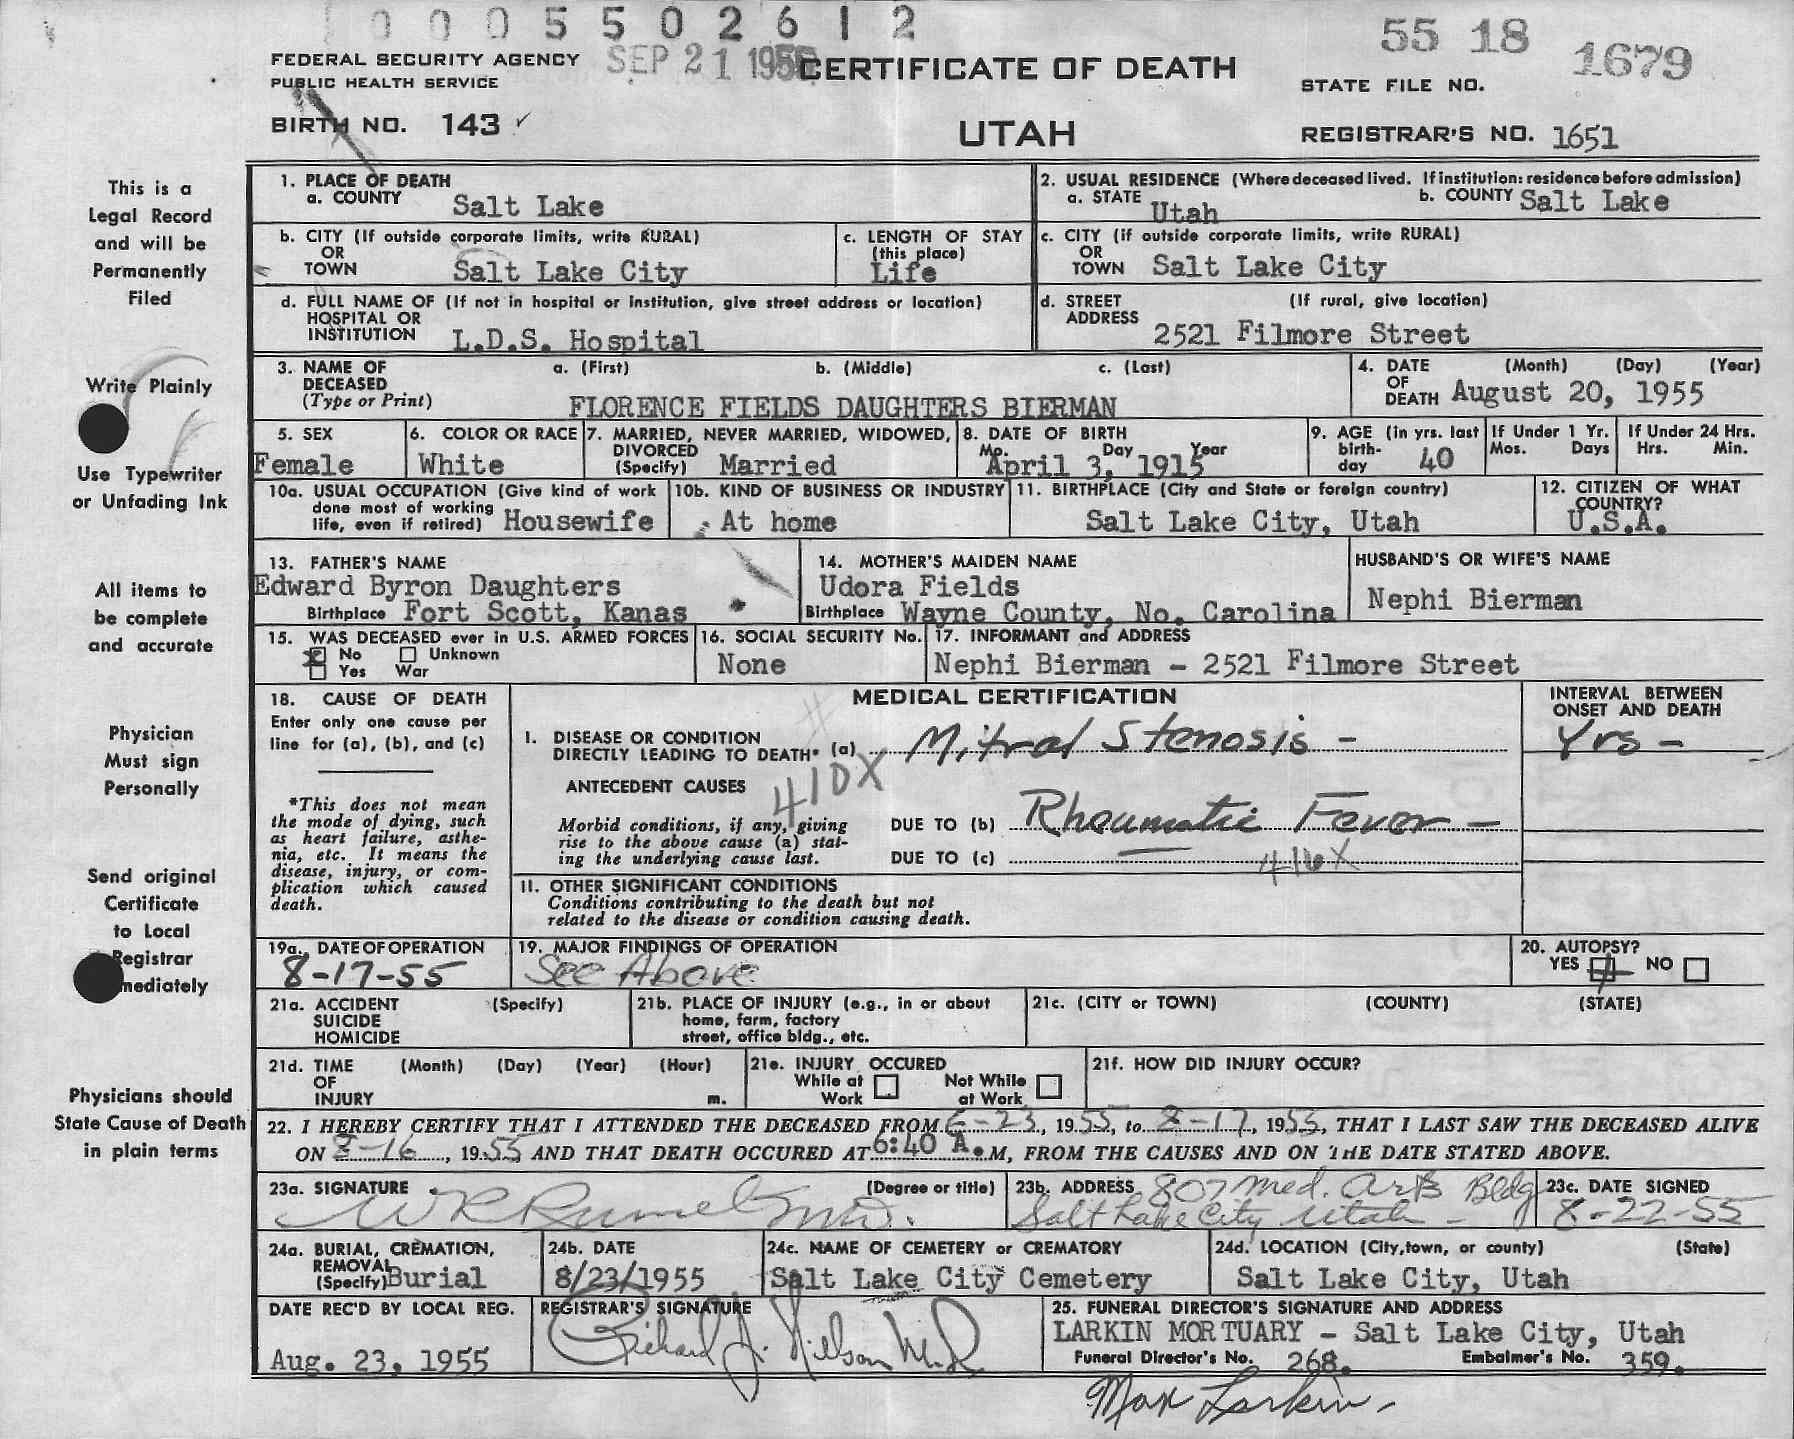 0 0 0 5 5 0 2 6 1 2
55 18 1679
FEDERAL SECURITY AGENCY SEP 21 1955 CERTIFICATE OF DEATH
PUBLIC HEALTH SERVICE
STATE FILE NO.
BIRTH NO. 143 ✓ UTAH REGISTRAR'S NO. 1651
This is a
Legal Record
and will be
Permanently
Filed
Write Plainly
Use Typewriter
or Unfading Ink
All items to
be complete
and accurate
Physician
Must sign
Personally
Send original
Certificate
to Local
Registrar
mediately
Physicians should
State Cause of Death
in plain terms
1. PLACE OF DEATH
a. COUNTY Salt Lake
2. USUAL RESIDENCE (Where deceased lived. If institution: residence before admission)
a. STATE Utah b. COUNTY Salt Lake
b. CITY (If outside corporate limits, write RURAL)
OR
TOWN Salt Lake City
c. LENGTH OF STAY
(this place)
Life
c. CITY (if outside corporate limits, write RURAL)
OR
TOWN Salt Lake City
d. FULL NAME OF (If not in hospital or institution, give street address or location)
HOSPITAL OR
INSTITUTION L.D.S. Hospital
d. STREET (If rural, give location)
ADDRESS 2521 Filmore Street
3. NAME OF a. (First) b. (Middle) c. (Last)
DECEASED
(Type or Print) FLORENCE FIELDS DAUGHTERS BIERMAN
4. DATE (Month) (Day) (Year)
OF
DEATH August 20, 1955
5. SEX
Female
6. COLOR OR RACE
White
7. MARRIED, NEVER MARRIED, WIDOWED,
DIVORCED
(Specify) Married
8. DATE OF BIRTH
Mo. Day Year
April 3, 1915
9. AGE (in yrs. last
birth-
day 40
If Under 1 Yr.
Mos. Days
If Under 24 Hrs.
Hrs. Min.
10a. USUAL OCCUPATION (Give kind of work
done most of working
life, even if retired) Housewife
10b. KIND OF BUSINESS OR INDUSTRY
At home
11. BIRTHPLACE (City and State or foreign country)
Salt Lake City, Utah
12. CITIZEN OF WHAT
COUNTRY?
U.S.A.
13. FATHER'S NAME
Edward Byron Daughters
Birthplace Fort Scott, Kanas
14. MOTHER'S MAIDEN NAME
Udora Fields
Birthplace Wayne County, No. Carolina
HUSBAND'S OR WIFE'S NAME
Nephi Bierman
15. WAS DECEASED ever in U.S. ARMED FORCES
No Unknown
Yes War
16. SOCIAL SECURITY No.
None
17. INFORMANT and ADDRESS
Nephi Bierman - 2521 Filmore Street
18. CAUSE OF DEATH
Enter only one cause per
line for (a), (b), and (c)
*This does not mean
the mode of dying, such
as heart failure, asthe-
nia, etc. It means the
disease, injury, or com-
plication which caused
death.
MEDICAL CERTIFICATION
I. DISEASE OR CONDITION
DIRECTLY LEADING TO DEATH* (a) Mitral Stenosis -
ANTECEDENT CAUSES 410X
Morbid conditions, if any, giving
rise to the above cause (a) stat-
ing the underlying cause last.
DUE TO (b) Rheumatic Fever -
DUE TO (c) 416X
II. OTHER SIGNIFICANT CONDITIONS
Conditions contributing to the death but not
related to the disease or condition causing death.
INTERVAL BETWEEN
ONSET AND DEATH
Yrs -
19a. DATE OF OPERATION
8-17-55
19. MAJOR FINDINGS OF OPERATION
See Above
20. AUTOPSY?
YES NO
21a. ACCIDENT (Specify)
SUICIDE
HOMICIDE
21b. PLACE OF INJURY (e.g., in or about
home, farm, factory
street, office bldg., etc.
21c. (CITY or TOWN) (COUNTY) (STATE)
21d. TIME (Month) (Day) (Year) (Hour)
OF
INJURY m.
21e. INJURY OCCURED
While at Not While
Work at Work
21f. HOW DID INJURY OCCUR?
22. I HEREBY CERTIFY THAT I ATTENDED THE DECEASED FROM 6-23, 1955, to 8-17, 1955, THAT I LAST SAW THE DECEASED ALIVE
ON 8-16, 1955 AND THAT DEATH OCCURED AT 6:40 A.M, FROM THE CAUSES AND ON THE DATE STATED ABOVE.
23a. SIGNATURE (Degree or title)
23b. ADDRESS 807 Med. Arts Bldg
Salt Lake City Utah -
23c. DATE SIGNED
8-22-55
24a. BURIAL, CREMATION,
REMOVAL
(Specify) Burial
24b. DATE
8/23/1955
24c. NAME OF CEMETERY or CREMATORY
Salt Lake City Cemetery
24d. LOCATION (City, town, or county) (State)
Salt Lake City, Utah
DATE REC'D BY LOCAL REG.
Aug. 23, 1955
REGISTRAR'S SIGNATURE
Richard J. Nilson M.D.
25. FUNERAL DIRECTOR'S SIGNATURE AND ADDRESS
LARKIN MORTUARY - Salt Lake City, Utah
Funeral Director's No. 268. Embalmer's No. 359.
Max Larkin